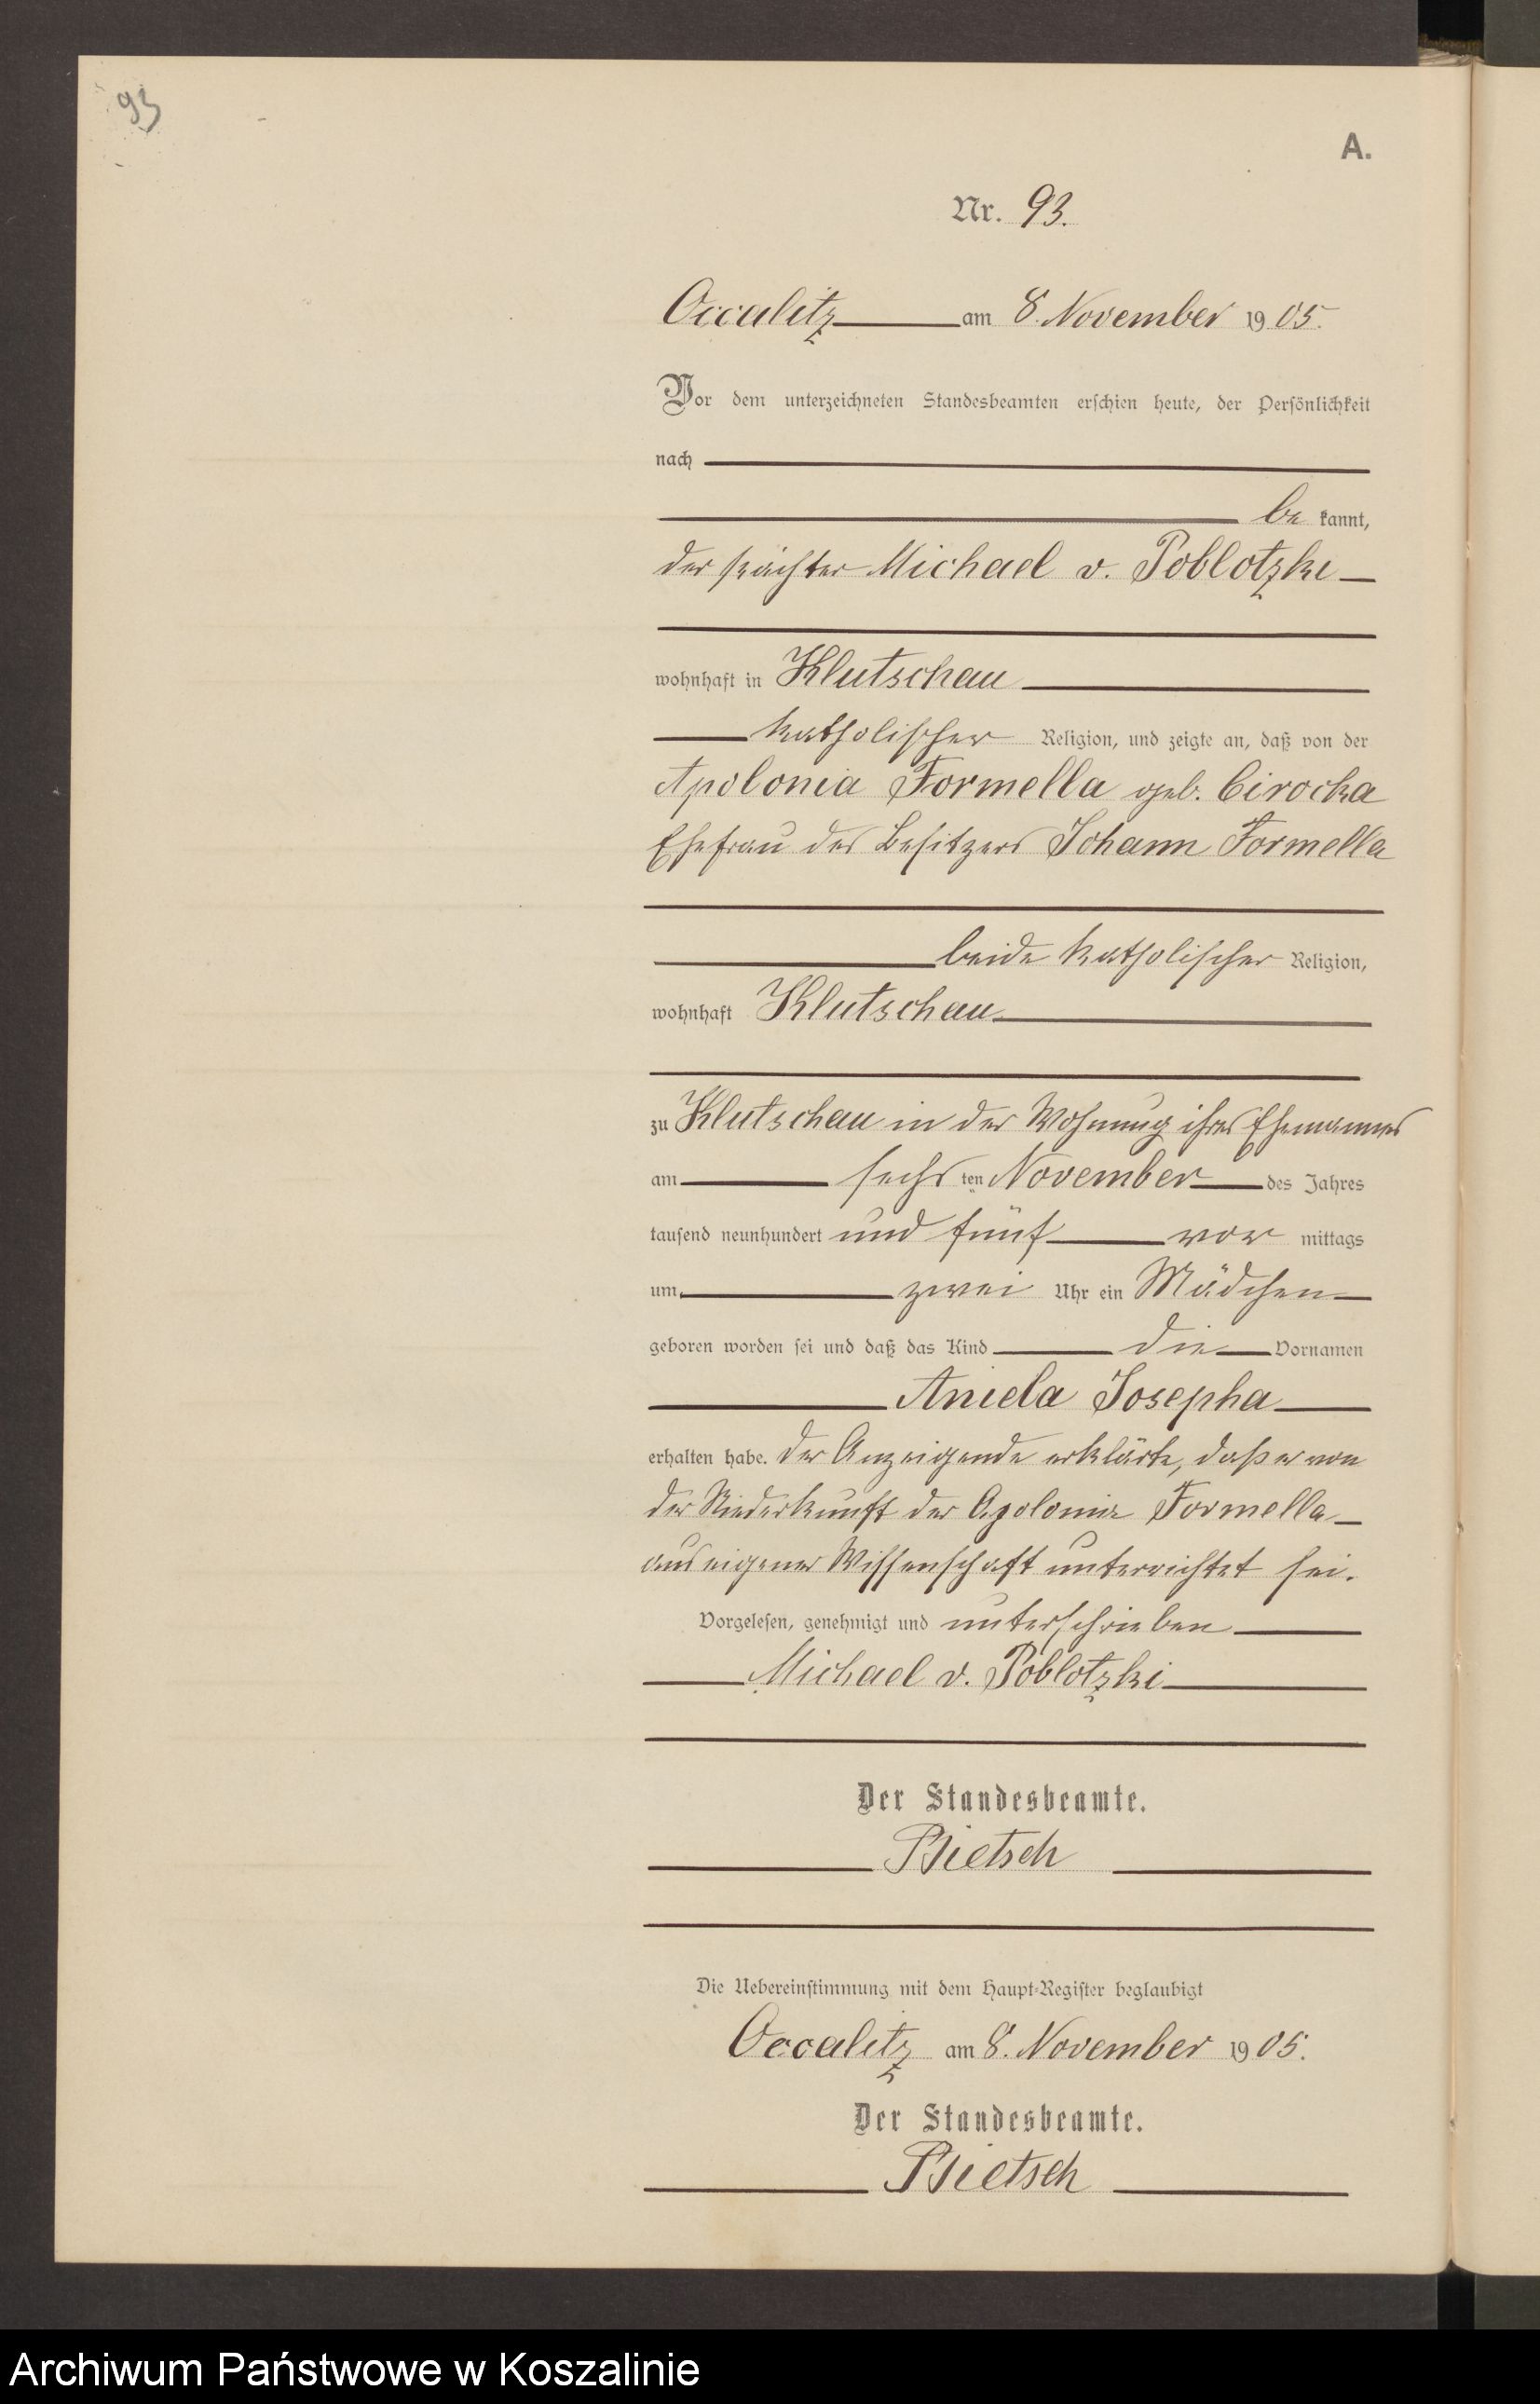 93
A.
Nr. 93.
Occalitz am 8. November 1905.
Vor dem unterzeichneten Standesbeamten erschien heute, der Persönlichkeit
nach
be kannt,
der Pächter Michael v. Poblotzki
wohnhaft in Klutschau
katholischer Religion, und zeigte an, daß von der
Apolonia Formella geb. Cirocka
Ehefrau des Besitzers Johann Formella
beide katholischer Religion,
wohnhaft Klutschau
zu Klutschau in der Wohnung ihres Ehemannes
am sechs ten November des Jahres
tausend neunhundert und fünf vor mittags
um zwei Uhr ein Mädchen
geboren worden sei und daß das Kind die Vornamen
Aniela Josepha
erhalten habe. Der Anzeigende erklärte, daß er von
der Niederkunft der Apolonia Formella
aus eigener Wissenschaft unterrichtet sei.
Vorgelesen, genehmigt und unterschrieben
Michael v. Poblotzki
Der Standesbeamte.
Die Uebereinstimmung mit dem Haupt-Register beglaubigt
Occalitz am 8. November 1905.
Der Standesbeamte.
Archiwum Państwowe w Koszalinie